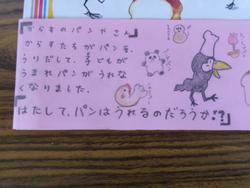 『からすのパンやさん』
からすたちがパンを、
うりだして、子どもが
うまれパンがうれな
くなりました。
はたして、パンはうれるのだろうか!?